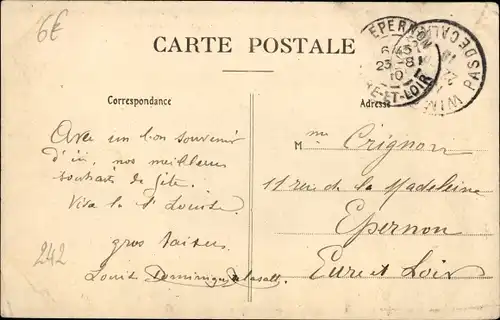 6€
CARTE POSTALE
EPERNON
6/45
23-8
10
RE-ET-LOIR
PAS DE CALAIS
WIM
Correspondance
Adresse
Avec un bon souvenir
d'ici, nos meilleurs
souhaits de fête.
Vive la St Louise.
gros baisers
Louis Dominique Delasalle
242
Mme Crignon
11 rue de la Madeleine
Epernon
Eure et Loir